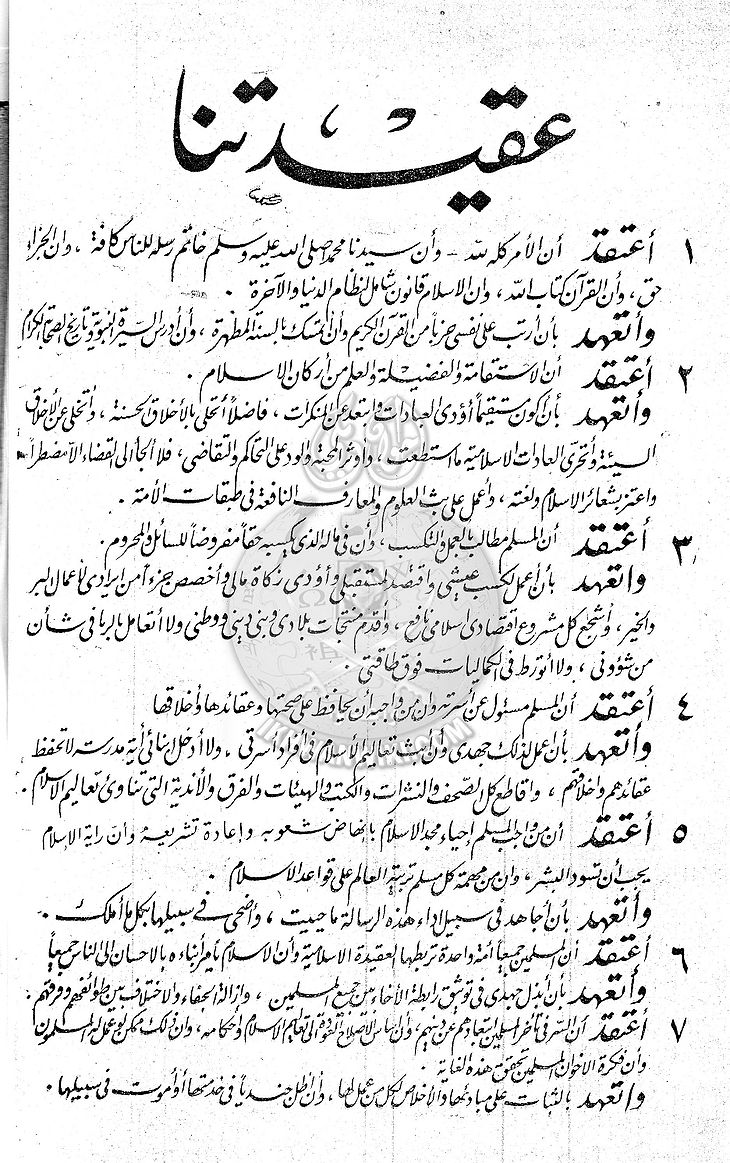 عقيدتنا
١ أعتقد أن الأمر كله لله – وأن سيدنا محمد صلى الله عليه وسلم خاتم رسله للناس كافة ، وان الجزاء
حق ، وأن القرآن كتاب الله ، وان الاسلام قانون شامل لنظام الدنيا والآخرة .
وأتعهد بأن أرتب على نفسى حزباً من القرآن الكريم وأن أتمسك بالسنة المطهرة ، وأن أدرس السيرة النبوية وتاريخ الصحابة الكرام
٢ أعتقد أن الاستقامة والفضيلة والعلم من أركان الاسلام .
وأتعهد بأن أكون مستقيماً أؤدى العبادات وأبتعد عن المنكرات ، فاضلاً أتحلى بالأخلاق الحسنة ، وأتخلى عن الأخلاق
السيئة وأتحرى العادات الاسلامية ما استطعت ، وأوثر المحبة والود على التحاكم والتقاضى ، فلا ألجأ الى القضاء الا مضطراً
واعتز بشعائر الاسلام ولغته ، وأعمل على بث العلوم والمعارف النافعة فى طبقات الأمة .
٣ أعتقد أن المسلم مطالب بالعمل والتكسب ، وأن فى ماله الذى يكسبه حقاً مفروضاً للسائل والمحروم .
واتعهد بأن أعمل لكسب عيشى واقتصد لمستقبلى وأؤدى زكاة مالى وأخصص جزءاً من إيرادى لأعمال البر
والخير ، وأشجع كل مشروع اقتصادى اسلامى نافع ، وأقدم منتجات بلادى وبنى دينى ووطنى ولا أتعامل بالربا فى شأن
من شؤونى ، ولا أتورط فى الكماليات فوق طاقتى .
٤ أعتقد أن المسلم مسئول عن أسرته وان من واجبه أن يحافظ على صحتها وعقائدها وأخلاقها
وأتعهد بأن أعمل لذلك جهدى وأن أبث تعاليم الاسلام فى أفراد أسرتى ، ولا أدخل أبنائى أية مدرسة لا تحفظ
عقائدهم واخلاقهم ، واقاطع كل الصحف والنشرات والكتب والهيئات والفرق والأندية التى تناوئ تعاليم الاسلام .
٥ أعتقد أن من واجب المسلم إحياء مجد الاسلام بإنهاض شعوبه وإعادة تشريعه وان راية الإسلام
يجب أن تسود البشر ، وان من مهمة كل مسلم تربية العالم على قواعد الاسلام .
وأتعهد بأن أجاهد فى سبيل اداء هذه الرسالة ما حييت ، وأضحى فى سبيلها بكل ما أملك .
٦ أعتقد أن المسلمين جميعاً أمة واحدة تربطها العقيدة الاسلامية وأن الاسلام يأمر أبناءه بالاحسان الى الناس جميعاً
وأتعهد بأن أبذل جهدى فى توثيق رابطة الأخاء بين جميع المسلمين ، وازالة الجفاء والاختلاف بين طوائفهم وفرقهم .
٧ أعتقد أن السر فى تأخر المسلمين ابتعادهم عن دينهم ، وأن أساس الاصلاح العودة الى تعاليم الاسلام وأحكامه ، وان ذلك ممكن لو عمل له المسلمون
وأن فكرة الاخوان المسلمين تحقق هذه الغاية .
واتعهد بالثبات على مبادئها والإخلاص لكل من عمل لها ، وأن أظل جندياً فى خدمتها أو أموت فى سبيلها .